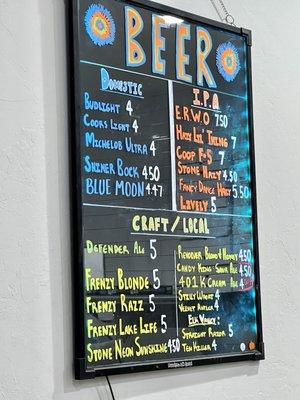 BEER
DOMESTIC
BUDLIGHT 4
COORS LIGHT 4
MICHELOB ULTRA 4
SHINER BOCK 4.50
BLUE MOON 4.47
I.P.A
E.R.W.O 7.50
HAZY LIL' THING 7
COOP F-5 7
STONE HAZY 4.50
FANCY DANCE HAZY 5.50
LIVELY 5
CRAFT/LOCAL
DEFENDER ALE 5
FRENZY BLONDE 5
FRENZY RAZZ 5
FRENZY LAKE LIFE 5
STONE NEON SUNSHINE 4.50
4.50
CANDY KING 4.50
401K CREAM ALE 4
WHEAT 4
VELVET ANTLER 4
ELK VALLEY:
STRAIGHT RAZOR 5
TEN MILLER 4